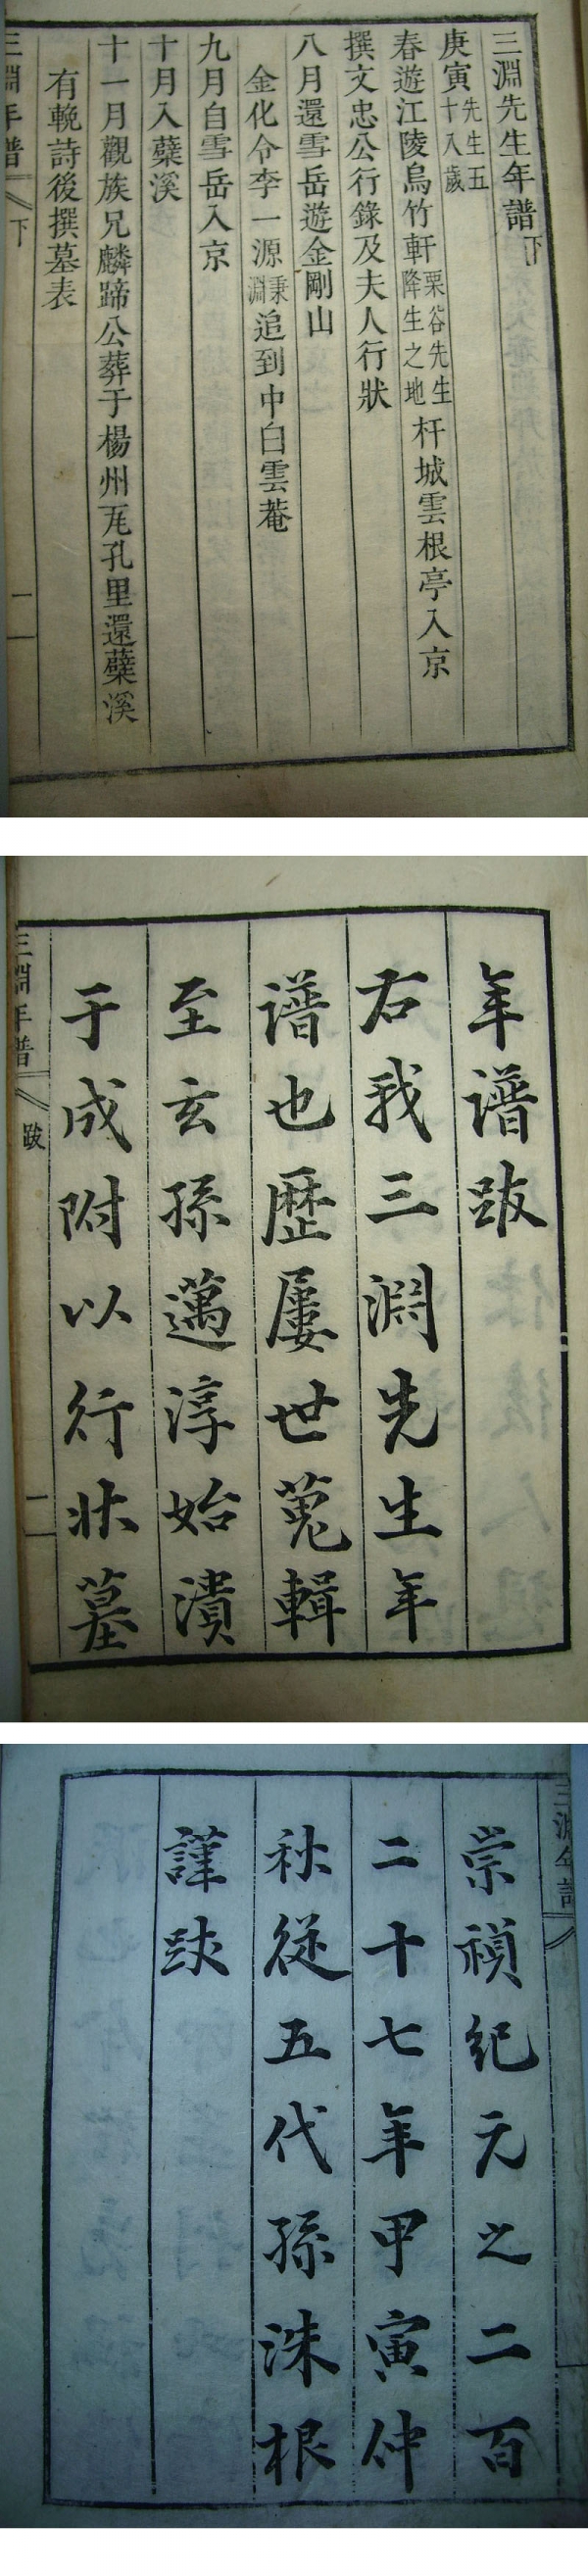 三淵先生年譜下
庚寅先生五十八歲
春遊江陵烏竹軒栗谷先生降生之地杆城雲根亭入京
撰文忠公行錄及夫人行狀
八月還雪岳遊金剛山
金化令李一源秉淵追到中白雲菴
九月自雪岳入京
十月入蘗溪
十一月觀族兄麟蹄公葬于楊州瓦孔里還蘗溪
有輓詩後撰墓表
三淵年譜 下 一
年譜跋
右我三淵先生年
譜也歷屢世蒐輯
至玄孫邁淳始潰
于成附以行狀墓
三淵年譜 跋 一
三淵年譜
崇禎紀元之二百
二十七年甲寅仲
秋從五代孫洙根
謹跋